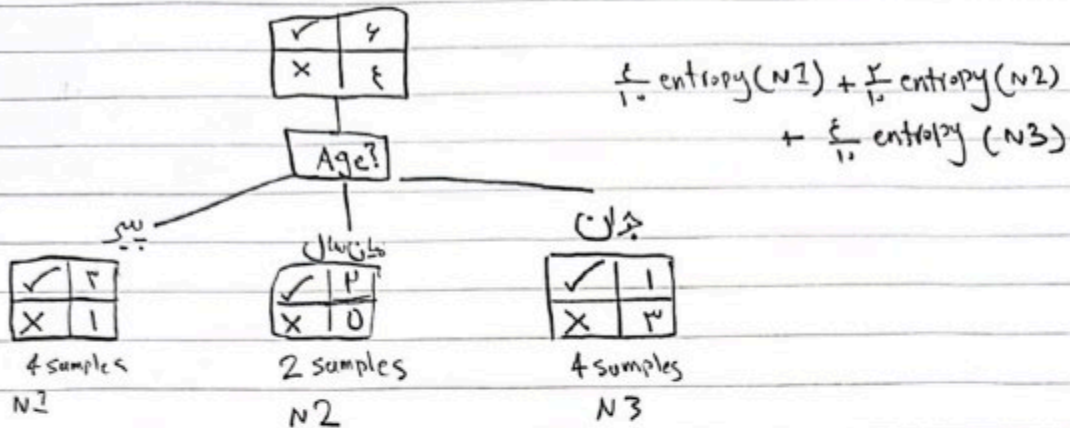 ✓ ۶
× ٤
٤/۱۰ entropy(N1) + ۲/۱۰ entropy(N2)
+ ٤/۱۰ entropy (N3)
Age?
پیر میان سال جوان
✓ ۳ ✓ ۲ ✓ ۱
× ۱ × 0 × ۳
4 samples 2 samples 4 samples
N1 N2 N3